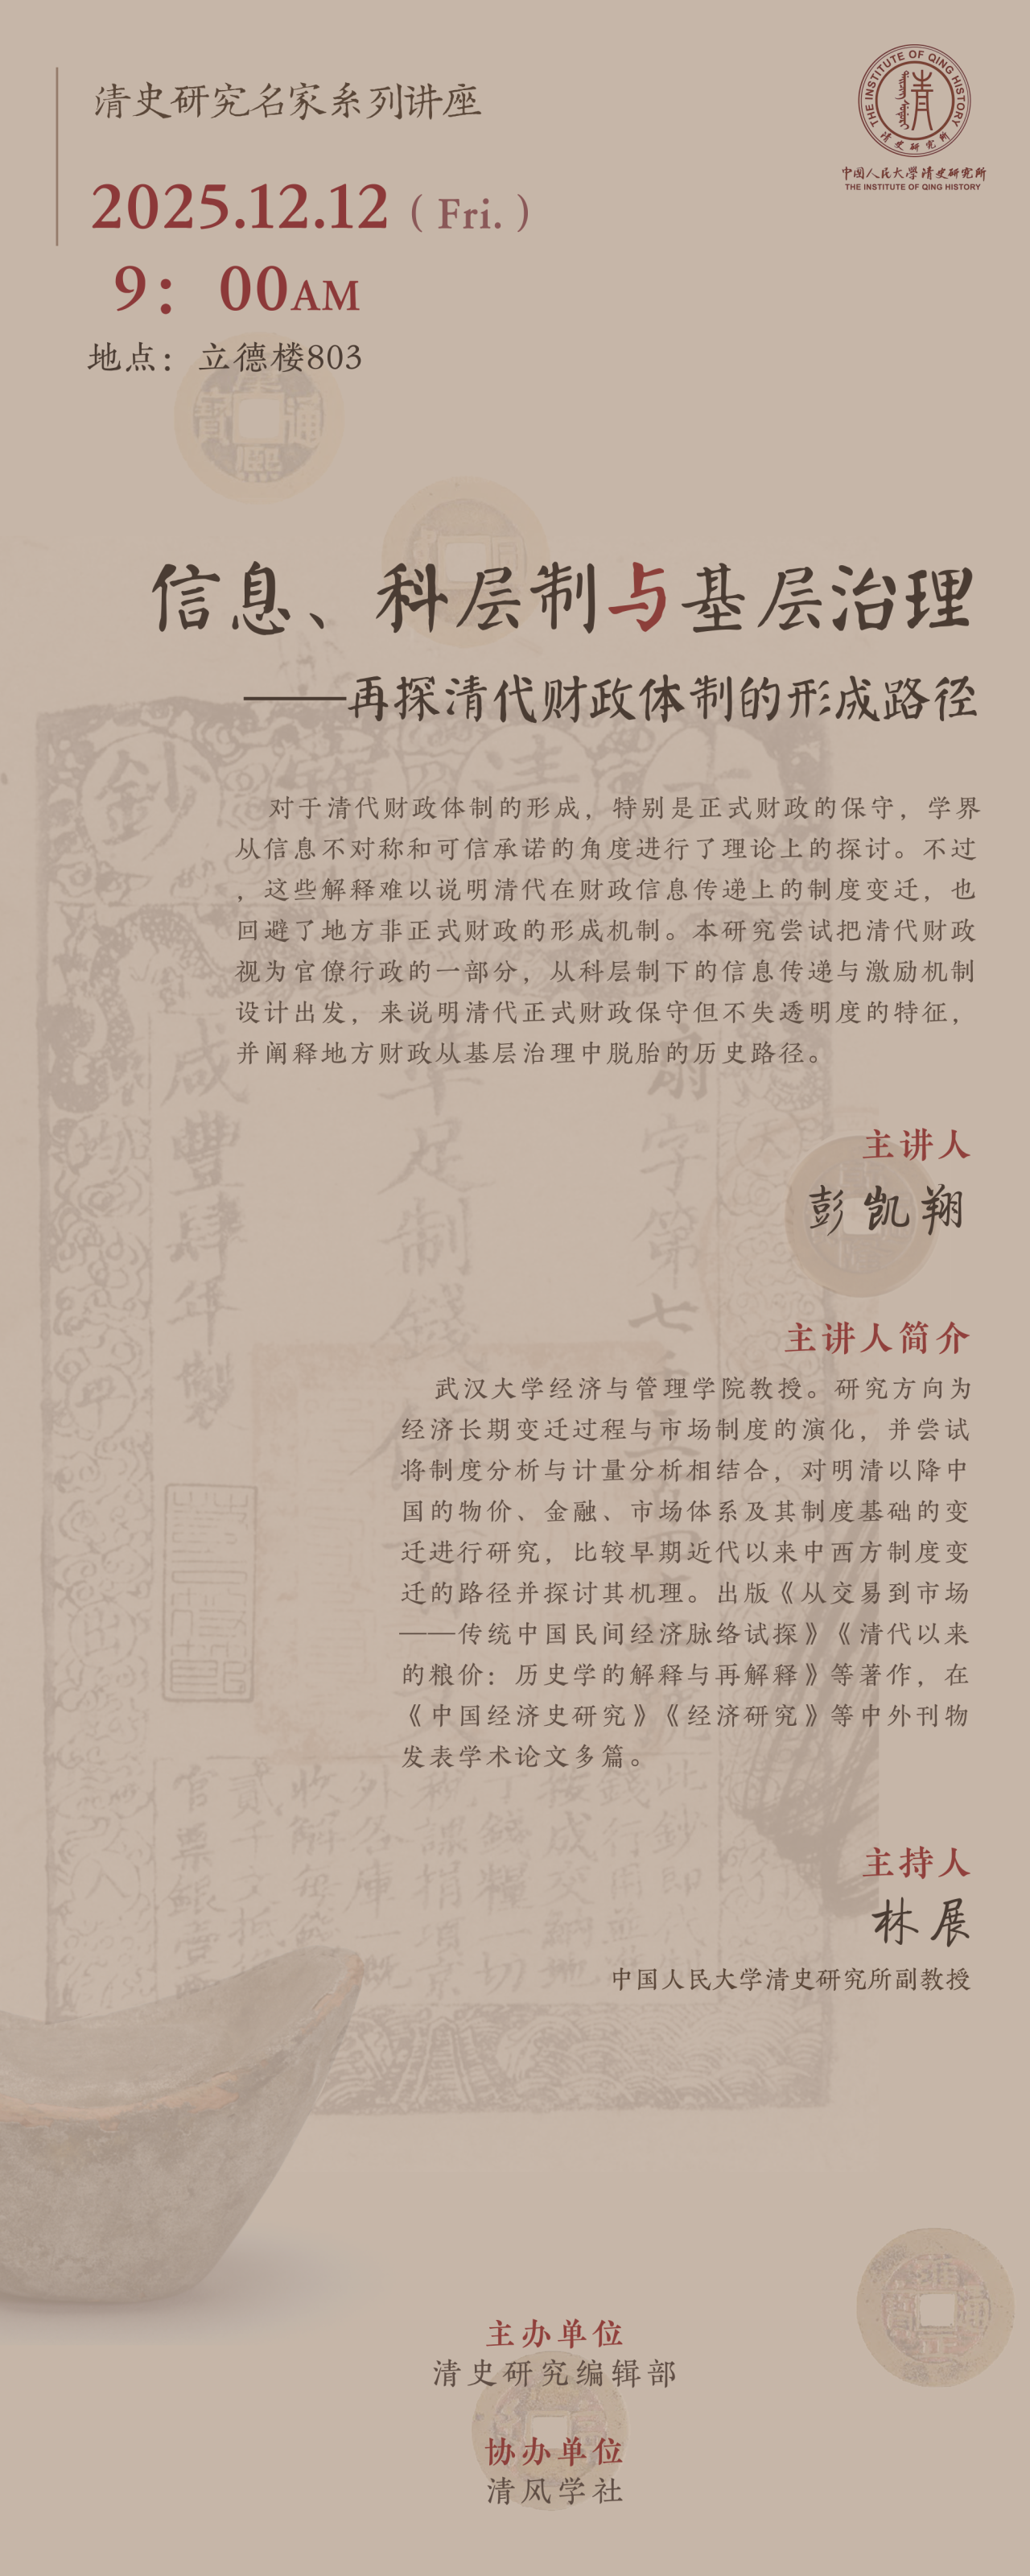 清史研究名家系列讲座
THE INSTITUTE OF QING HISTORY
清史研究所
中国人民大學清史研究所
THE INSTITUTE OF QING HISTORY
2025.12.12（Fri.）
9：00AM
地点：立德楼803
康熙通寳
信息、科层制与基层治理
——再探清代财政体制的形成路径
对于清代财政体制的形成，特别是正式财政的保守，学界
从信息不对称和可信承诺的角度进行了理论上的探讨。不过
，这些解释难以说明清代在财政信息传递上的制度变迁，也
回避了地方非正式财政的形成机制。本研究尝试把清代财政
视为官僚行政的一部分，从科层制下的信息传递与激励机制
设计出发，来说明清代正式财政保守但不失透明度的特征，
并阐释地方财政从基层治理中脱胎的历史路径。
主讲人
彭凯翔
主讲人简介
武汉大学经济与管理学院教授。研究方向为
经济长期变迁过程与市场制度的演化，并尝试
将制度分析与计量分析相结合，对明清以降中
国的物价、金融、市场体系及其制度基础的变
迁进行研究，比较早期近代以来中西方制度变
迁的路径并探讨其机理。出版《从交易到市场
——传统中国民间经济脉络试探》《清代以来
的粮价：历史学的解释与再解释》等著作，在
《中国经济史研究》《经济研究》等中外刊物
发表学术论文多篇。
咸豐肆年製
主持人
林展
中国人民大学清史研究所副教授
雍正通寳
主办单位
清史研究编辑部
协办单位
清风学社